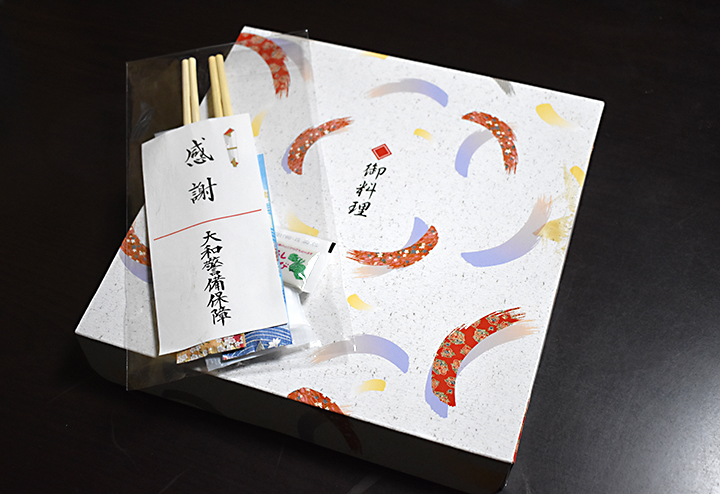 感謝
大和警備保障
御料理